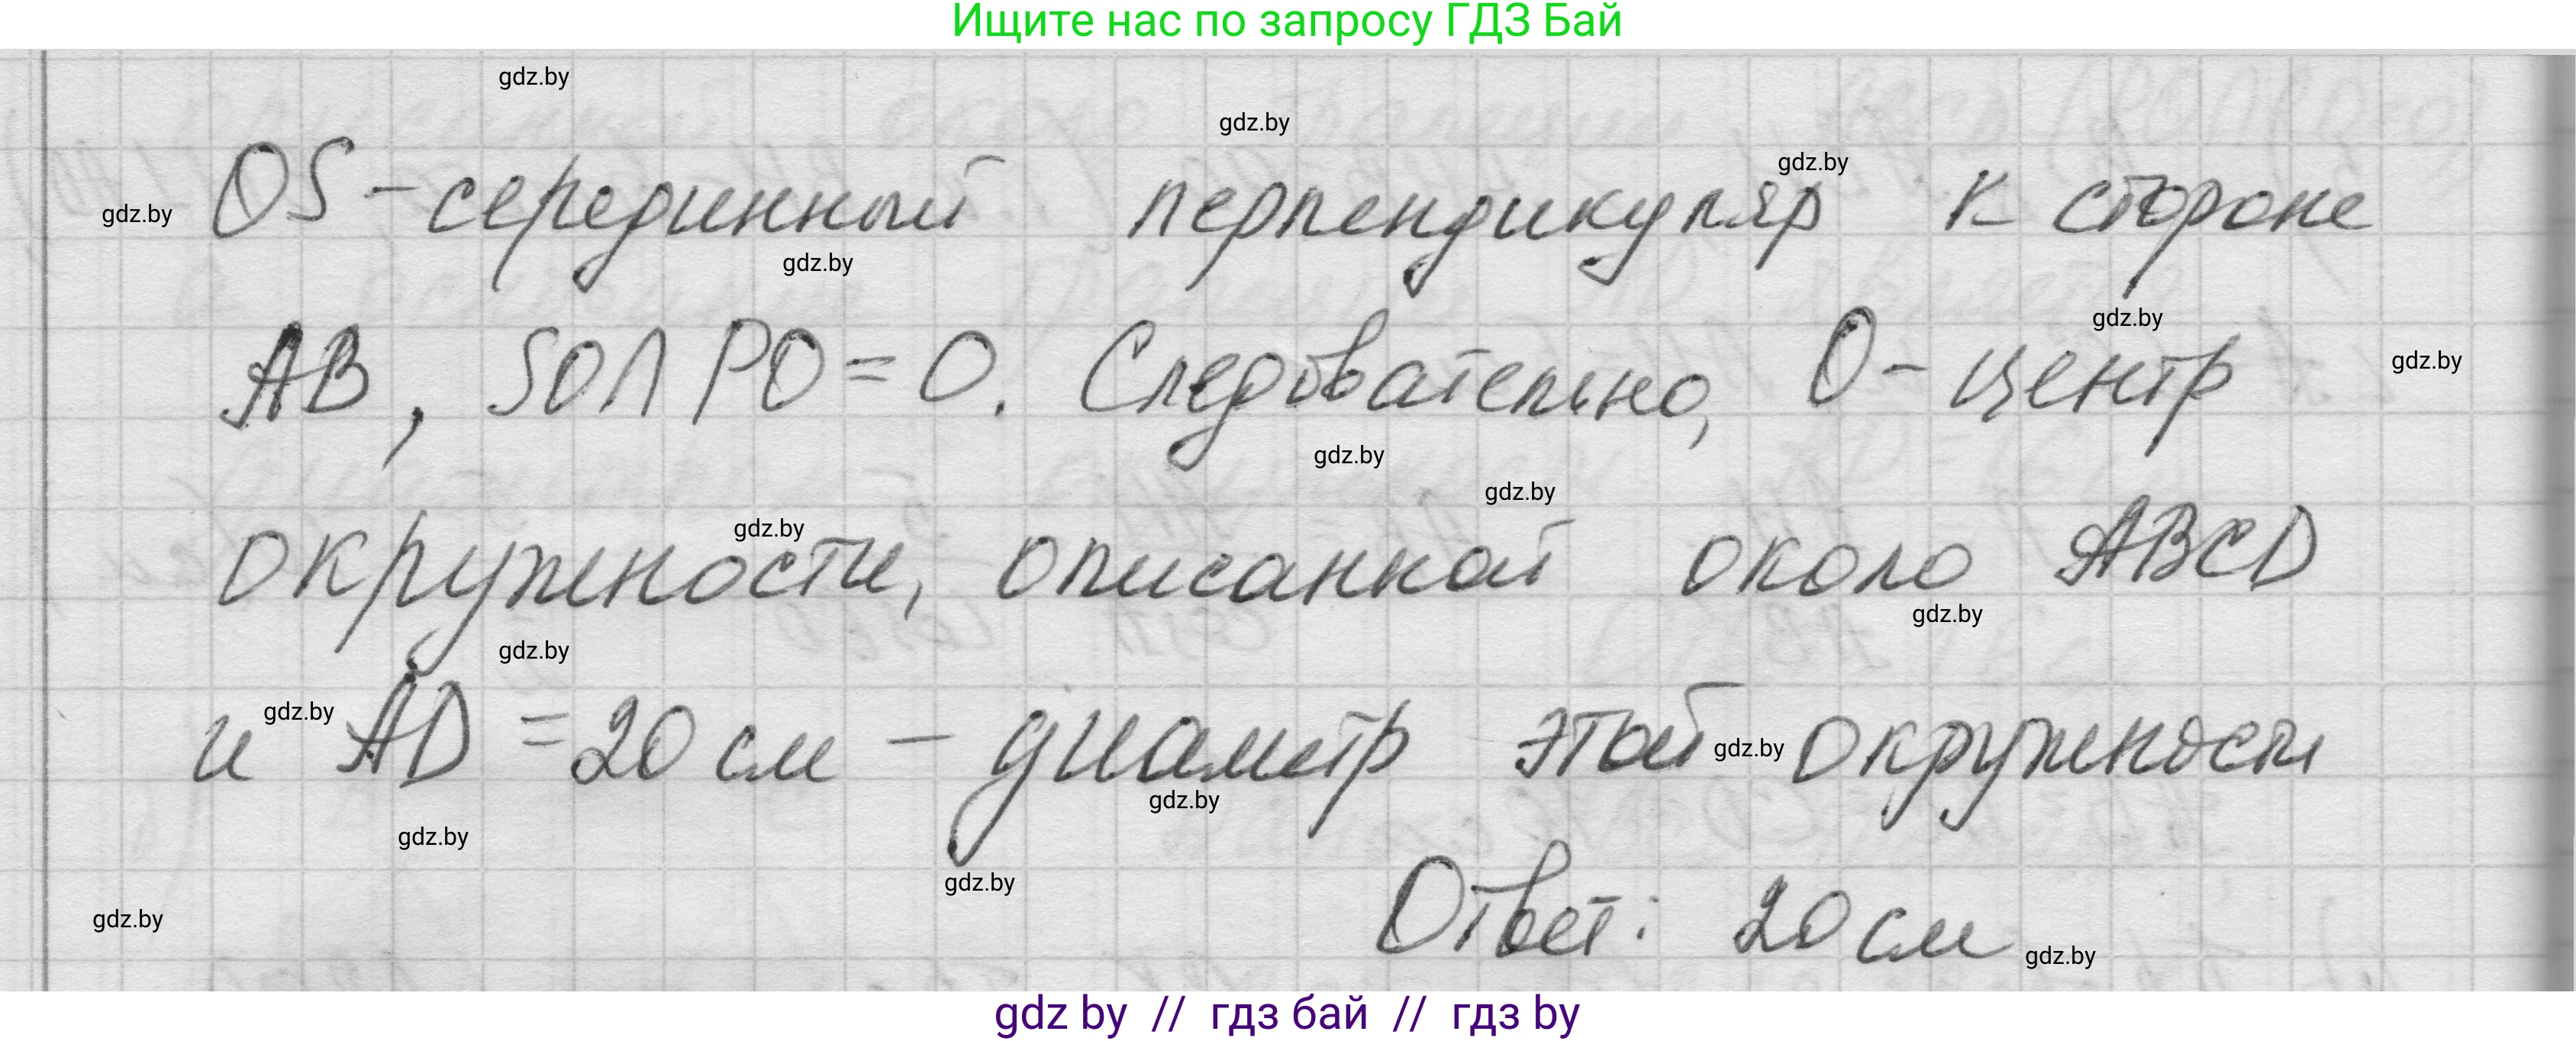 Ищите нас по запросу ГДЗ Бай
gdz.by
gdz.by
gdz.by
gdz.by
OS - серединный перпендикуляр к стороне
gdz.by
gdz.by
AB, SO∩PO = O. Следовательно, O - центр
gdz.by
gdz.by
gdz.by
gdz.by
окружности, описанной около ABCD
gdz.by
gdz.by
gdz.by
и AD = 20 см - диаметр этой окружности
gdz.by
gdz.by
gdz.by
gdz.by
gdz.by
Ответ: 20 см
gdz.by
gdz by // гдз бай // гдз by